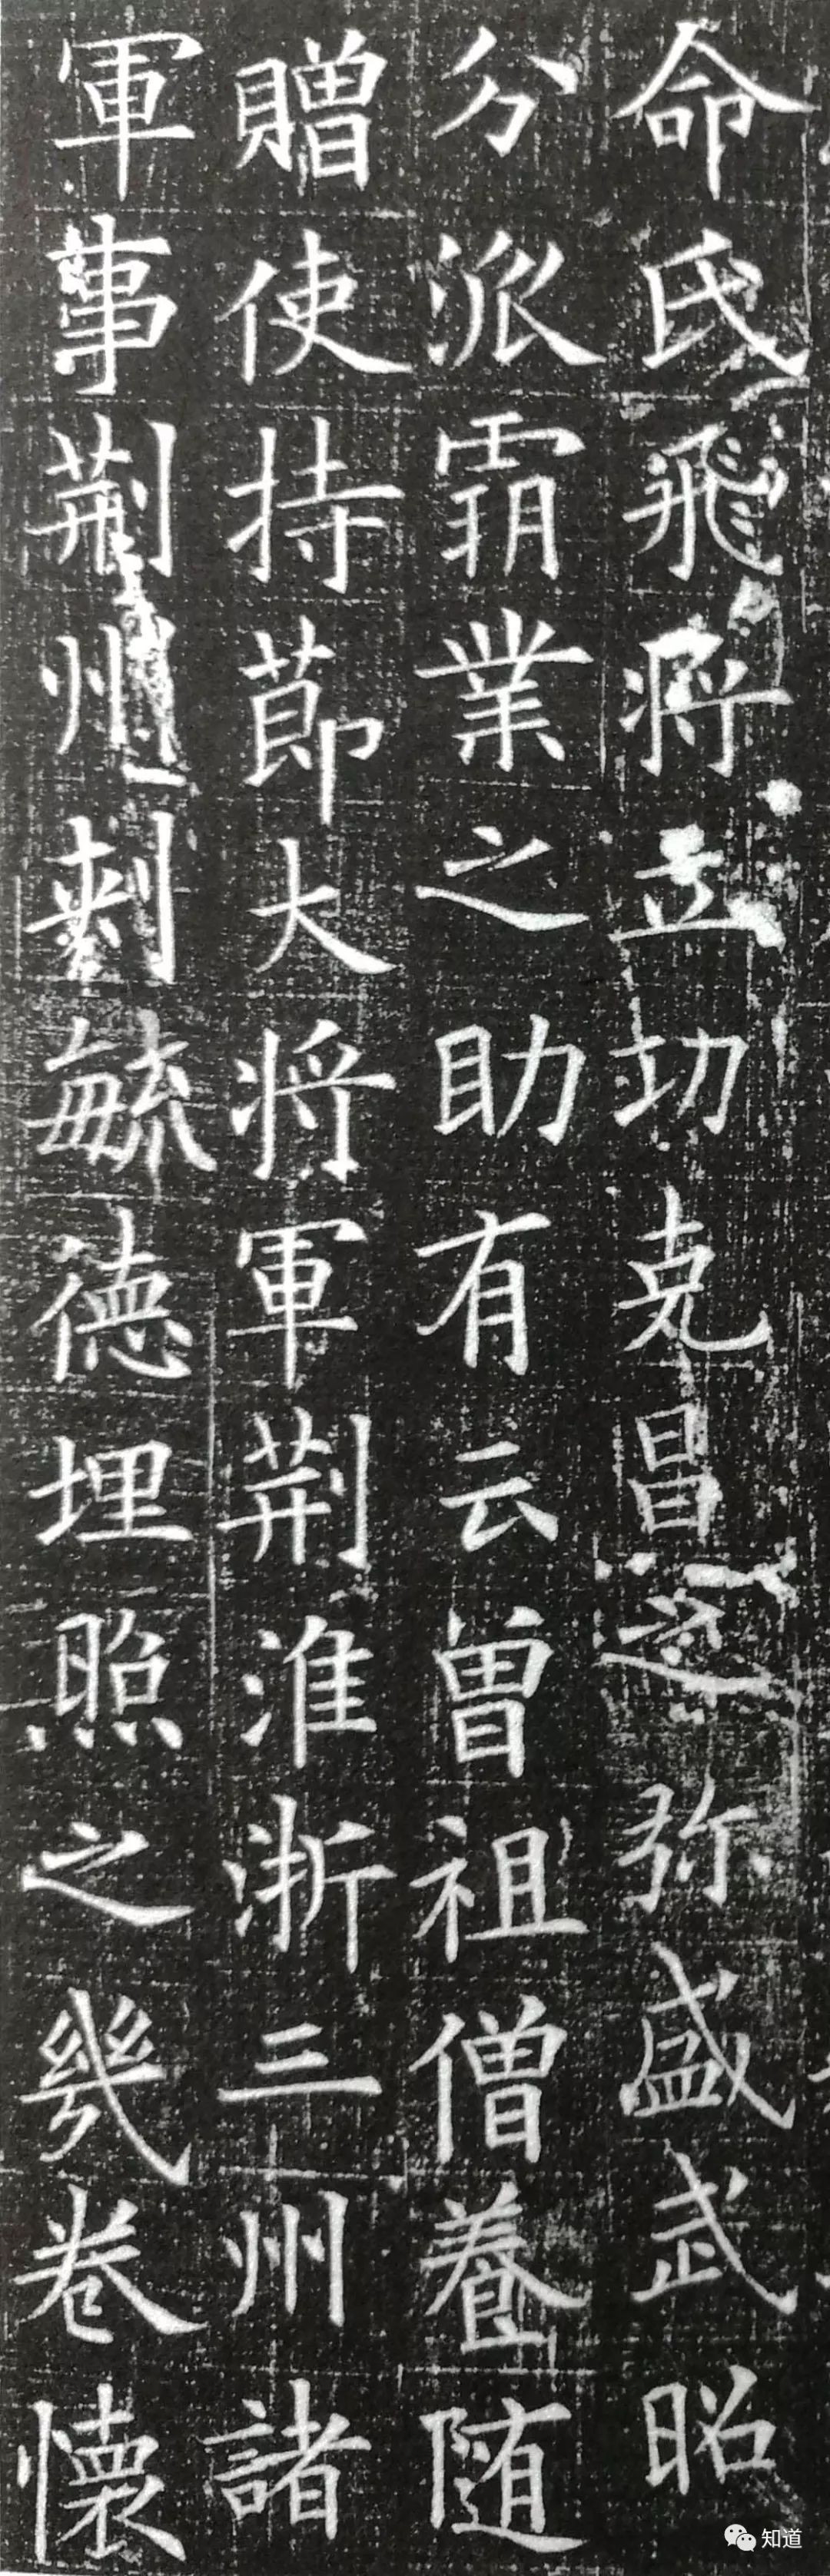 命氏飛將立功克昌之弥盛武昭
分派霸業之助有云曾祖僧養随
贈使持節大將軍荊淮浙三州諸
軍事荊州刺毓德埋照之幾卷懷
知道